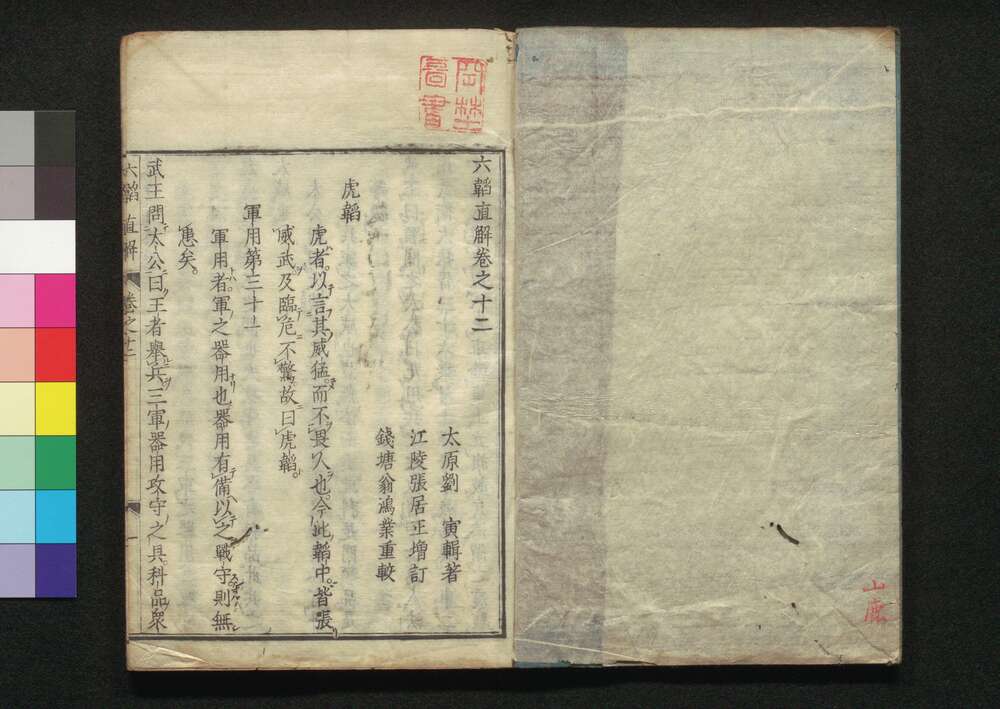 山鹿
圖書
六韜直解卷之十二
太原劉 寅輯著
江陵張居正增訂
錢塘翁鴻業重較
虎韜
虎者以言其威猛而不畏人也今此韜中皆張
威武及臨危不驚故曰虎韜。
軍用第三十一
軍用者軍之器用也器用有備以之戰守則無
患矣。
武王問太公曰王者舉兵三軍器用攻守之具科品衆
六韜直解 卷之十二 一